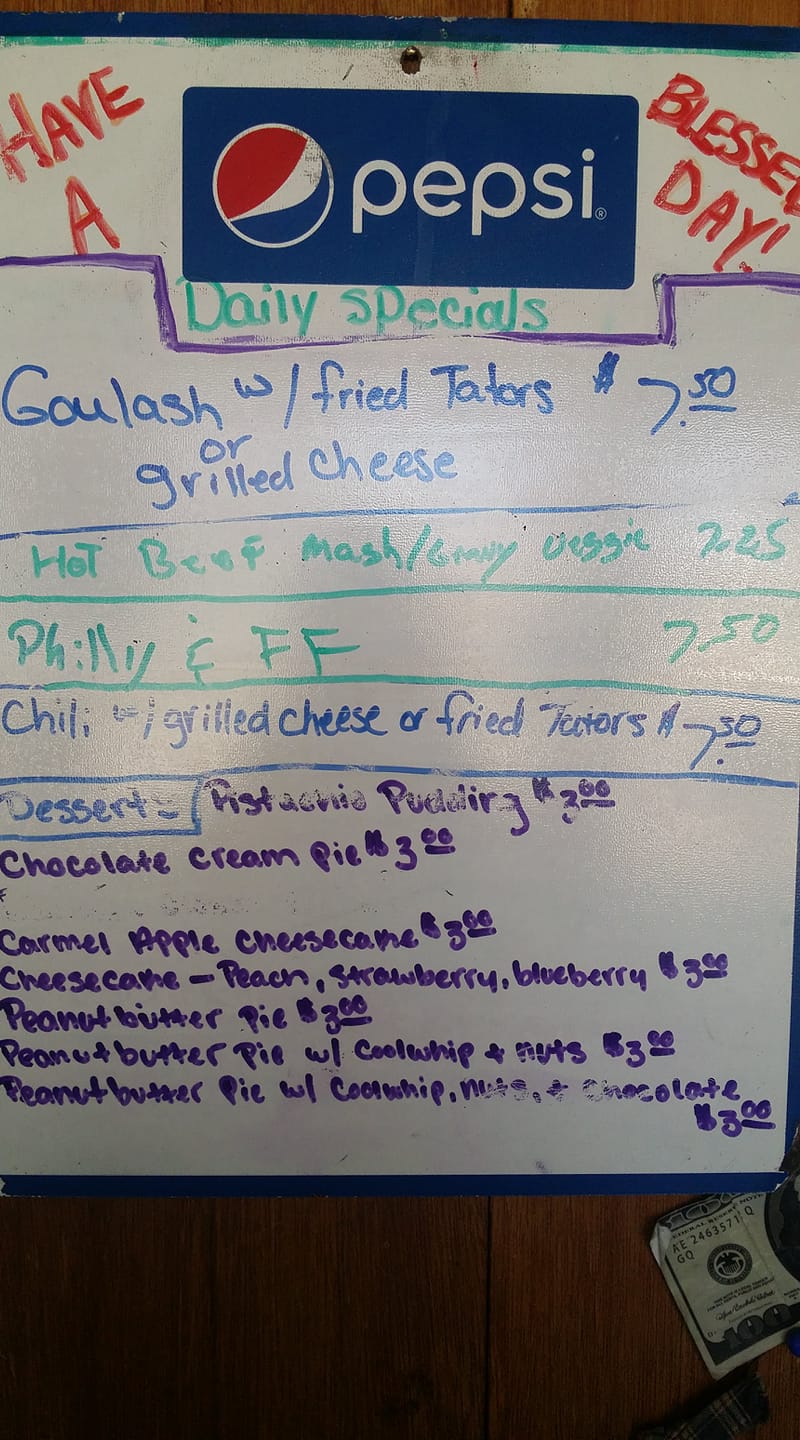 HAVE
A
pepsi®
BLESSED
DAY!
Daily Specials
Goulash w/ fried Tators $ 7.50
or
grilled cheese
Hot Beef Mash/Gravy Veggie 7.25
Philly & FF 7.50
Chili w/ grilled cheese or fried Tators $ 7.50
Desserts Pistachio Pudding $3.00
Chocolate Cream Pie $3.00
Carmel Apple Cheesecake $3.00
Cheesecake - Peach, Strawberry, blueberry $3.00
Peanutbutter Pie $3.00
Peanutbutter Pie w/ Coolwhip + nuts $3.00
Peanutbutter Pie w/ Coolwhip, nuts, + Chocolate
$3.00
FEDERAL RESERVE NOTE
AE 2463571 Q
GQ
100